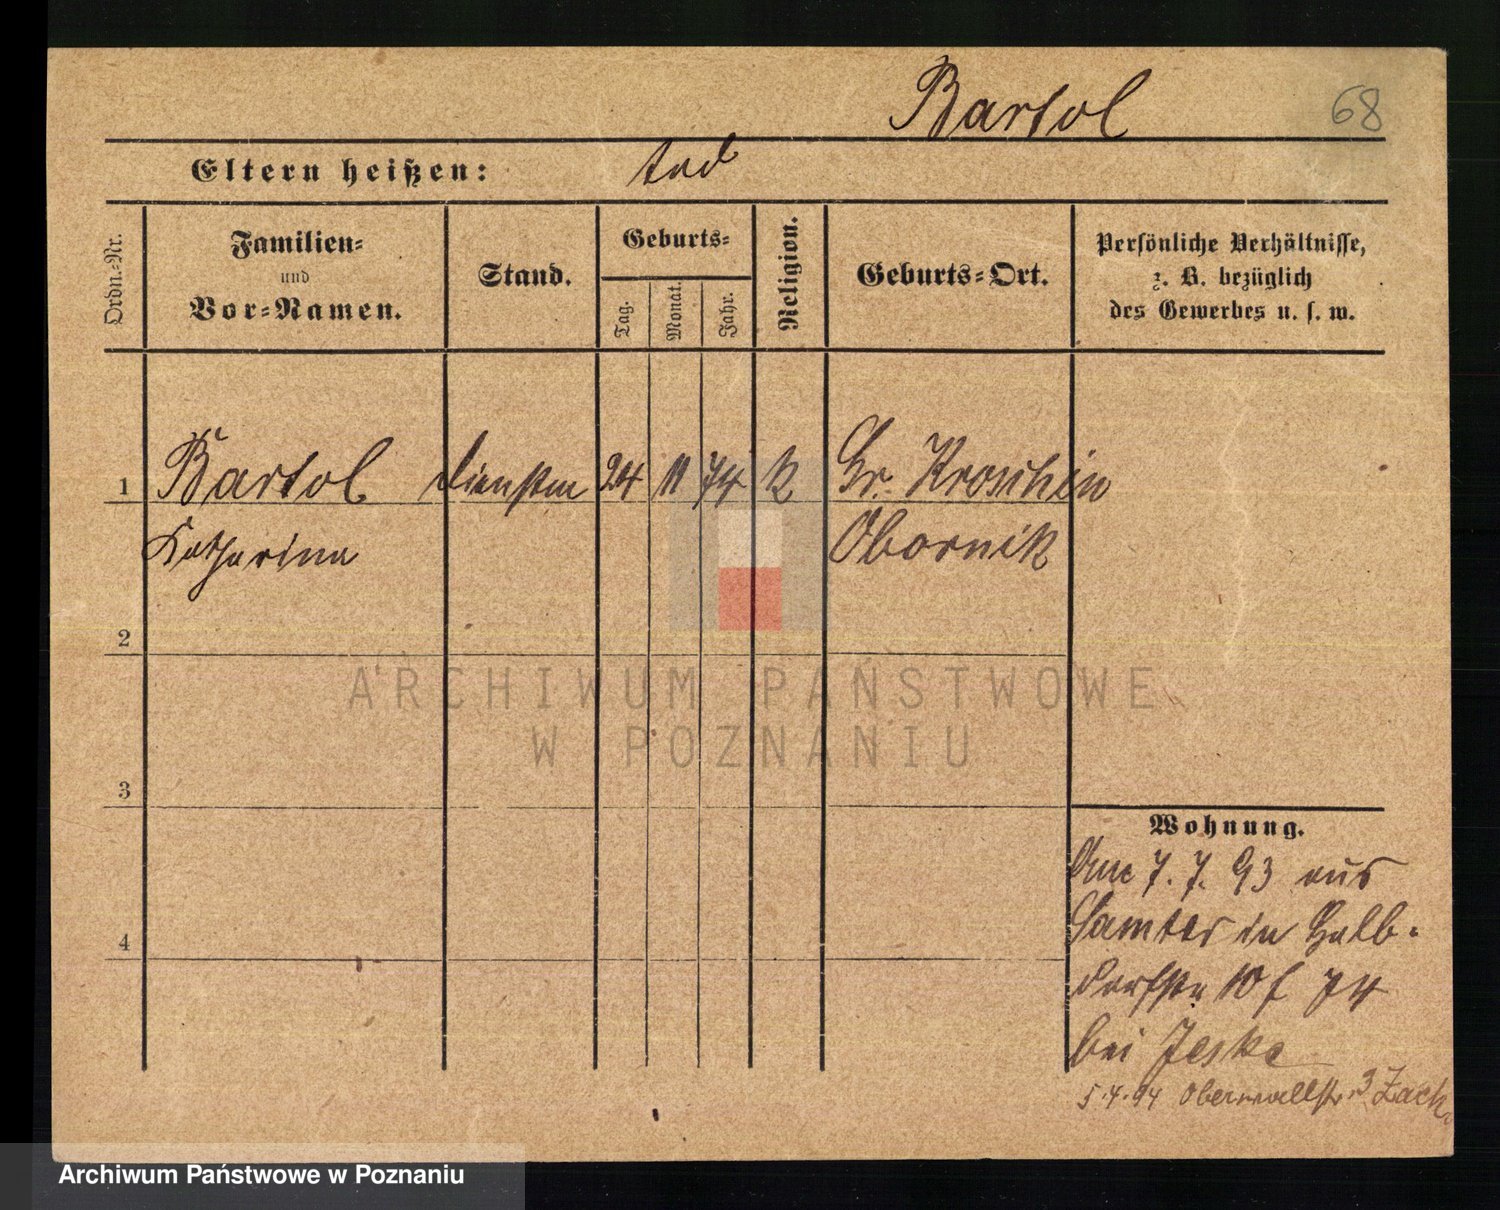 Bartol
68
Eltern heißen: tod
Ordn.-Nr.
Familien-
und
Vor-Namen.
Stand.
Geburts-
Tag.
Monat.
Jahr.
Religion.
Geburts-Ort.
Persönliche Verhältnisse,
z. B. bezüglich
des Gewerbes u. s. w.
1 Bartol 24 11 74 k Gr. Kroschin
Katharina Obornik
2
3
4
Wohnung.
Am 7. 7. 93 aus
Samter in Halb-
dorfstr 10 f 74
bei Jeske
5.4.94 Oberwallstr. 3 Zack
ARCHIWUM PAŃSTWOWE
W POZNANIU
Archiwum Państwowe w Poznaniu